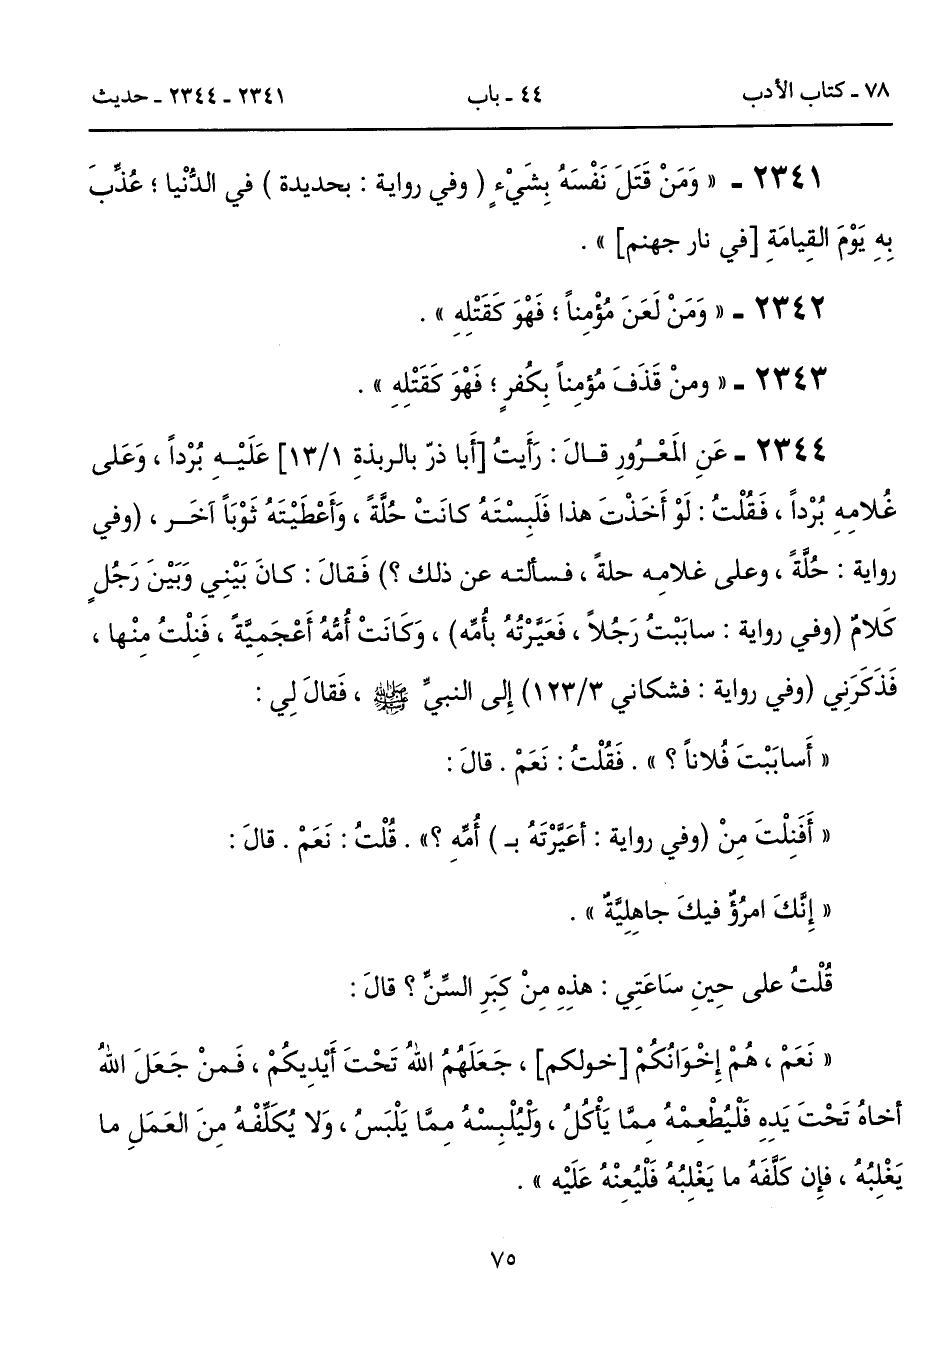 ٧٨ ـ كتاب الأدب ٤٤ ـ باب ٢٣٤١ ـ ٢٣٤٤ ـ حديث
٢٣٤١ ـ « وَمَنْ قَتَلَ نَفْسَهُ بِشَيْءٍ ( وفي رواية : بحديدة ) في الدُّنْيا ؛ عُذِّبَ
بِهِ يَوْمَ القِيامَةِ [في نار جهنم] » .
٢٣٤٢ ـ « وَمَنْ لَعَنَ مُؤْمِناً ؛ فَهْوَ كَقَتْلِهِ » .
٢٣٤٣ ـ « ومنْ قَذَفَ مُؤمِناً بِكُفرٍ ؛ فَهْوَ كَقَتْلِهِ » .
٢٣٤٤ ـ عَنِ المَعْـرُورِ قـالَ : رَأَيتُ [أَبا ذرّ بالربذة ١٣/١] عَلَيْـهِ بُرْداً ، وَعَلى
غُلامِهِ بُرْداً ، فَقُلْتُ : لَوْ أَخَذْتَ هذا فَلَبِسْتَهُ كانَتْ حُلَّةً ، وَأَعْطَيْتَهُ ثَوْبَاً آخَـر ، (وفي
رواية : حُلَّةً ، وعلى غلامـه حلةً ، فسألته عن ذلك ؟) فَقالَ : كـانَ بَيْنِي وَبَيْنَ رَجُلٍ
كَلامٌ (وفي رواية : سابَبْتُ رَجُلاً ، فَعَيَّرْتُهُ بأُمِّه) ، وَكَانَتْ أُمُّهُ أَعْجَمِيَّةً ، فَنِلْتُ مِنْها ،
فَذَكَرَنِي (وفي رواية : فشكاني ١٢٣/٣) إِلى النبيِّ ﷺ ، فَقالَ لِي :
« أَسابَبْتَ فُلاناً ؟ » . فَقُلْتُ : نَعَمْ . قالَ :
« أَفَنِلْتَ مِنْ (وفي رواية : أعَيَّرْتَهُ بـ ) أُمِّهِ ؟» . قُلْتُ : نَعَمْ . قالَ :
« إِنَّكَ امرُؤٌ فيكَ جاهِلِيَّةٌ » .
قُلْتُ على حِينِ سَاعَتِي : هذهِ مِنْ كِبَرِ السِّنِّ ؟ قالَ :
« نَعَمْ ، هُمْ إِخْوَانُكُمْ [خولكم] ، جَعَلَهُمُ اللهُ تَحْتَ أَيْدِيكُمْ ، فَـمنْ جَعَلَ اللهُ
أخاهُ تَحْتَ يَدِهِ فَلْيُطْعِمْهُ مـمَّا يَأْكُلُ ، وَلْيُلْبِسْهُ مـمَّا يَلْبَسُ ، وَلا يُكَلِّفْـهُ مِنَ العَمَلِ ما
يَغْلِبُهُ ، فإِن كَلَّفَهُ ما يَغْلِبُهُ فَلْيُعِنْهُ عَلَيْه » .
٧٥